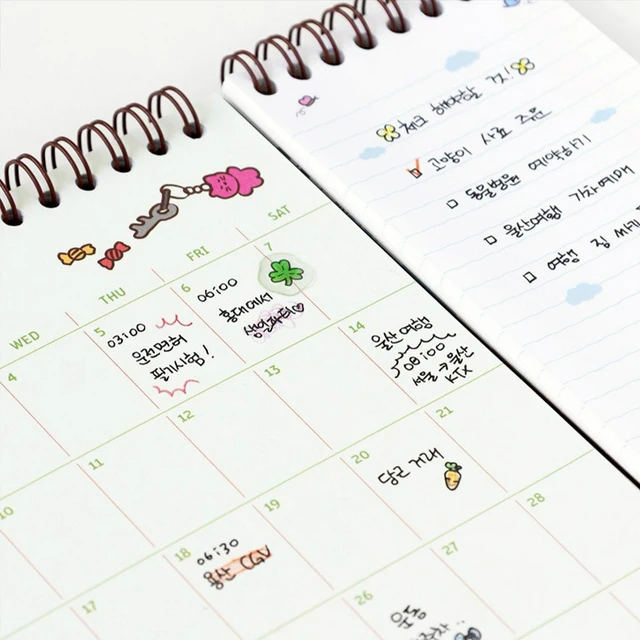 WED
THU
FRI
SAT
4
5
03:00
운전면허
필기시험!
6
06:00
홍대에서
생일파티♡
7
10
11
12
13
14
울산여행
08:00
서울→울산
KTX
17
18
06:30
용산 CGV
19
20
당근 거래
21
26
운동
27
28
체크 해야할 것!
☑ 고양이 사료 주문
□ 동물병원 예약하기
□ 울산여행 기차예매
□ 여행 짐 싸기